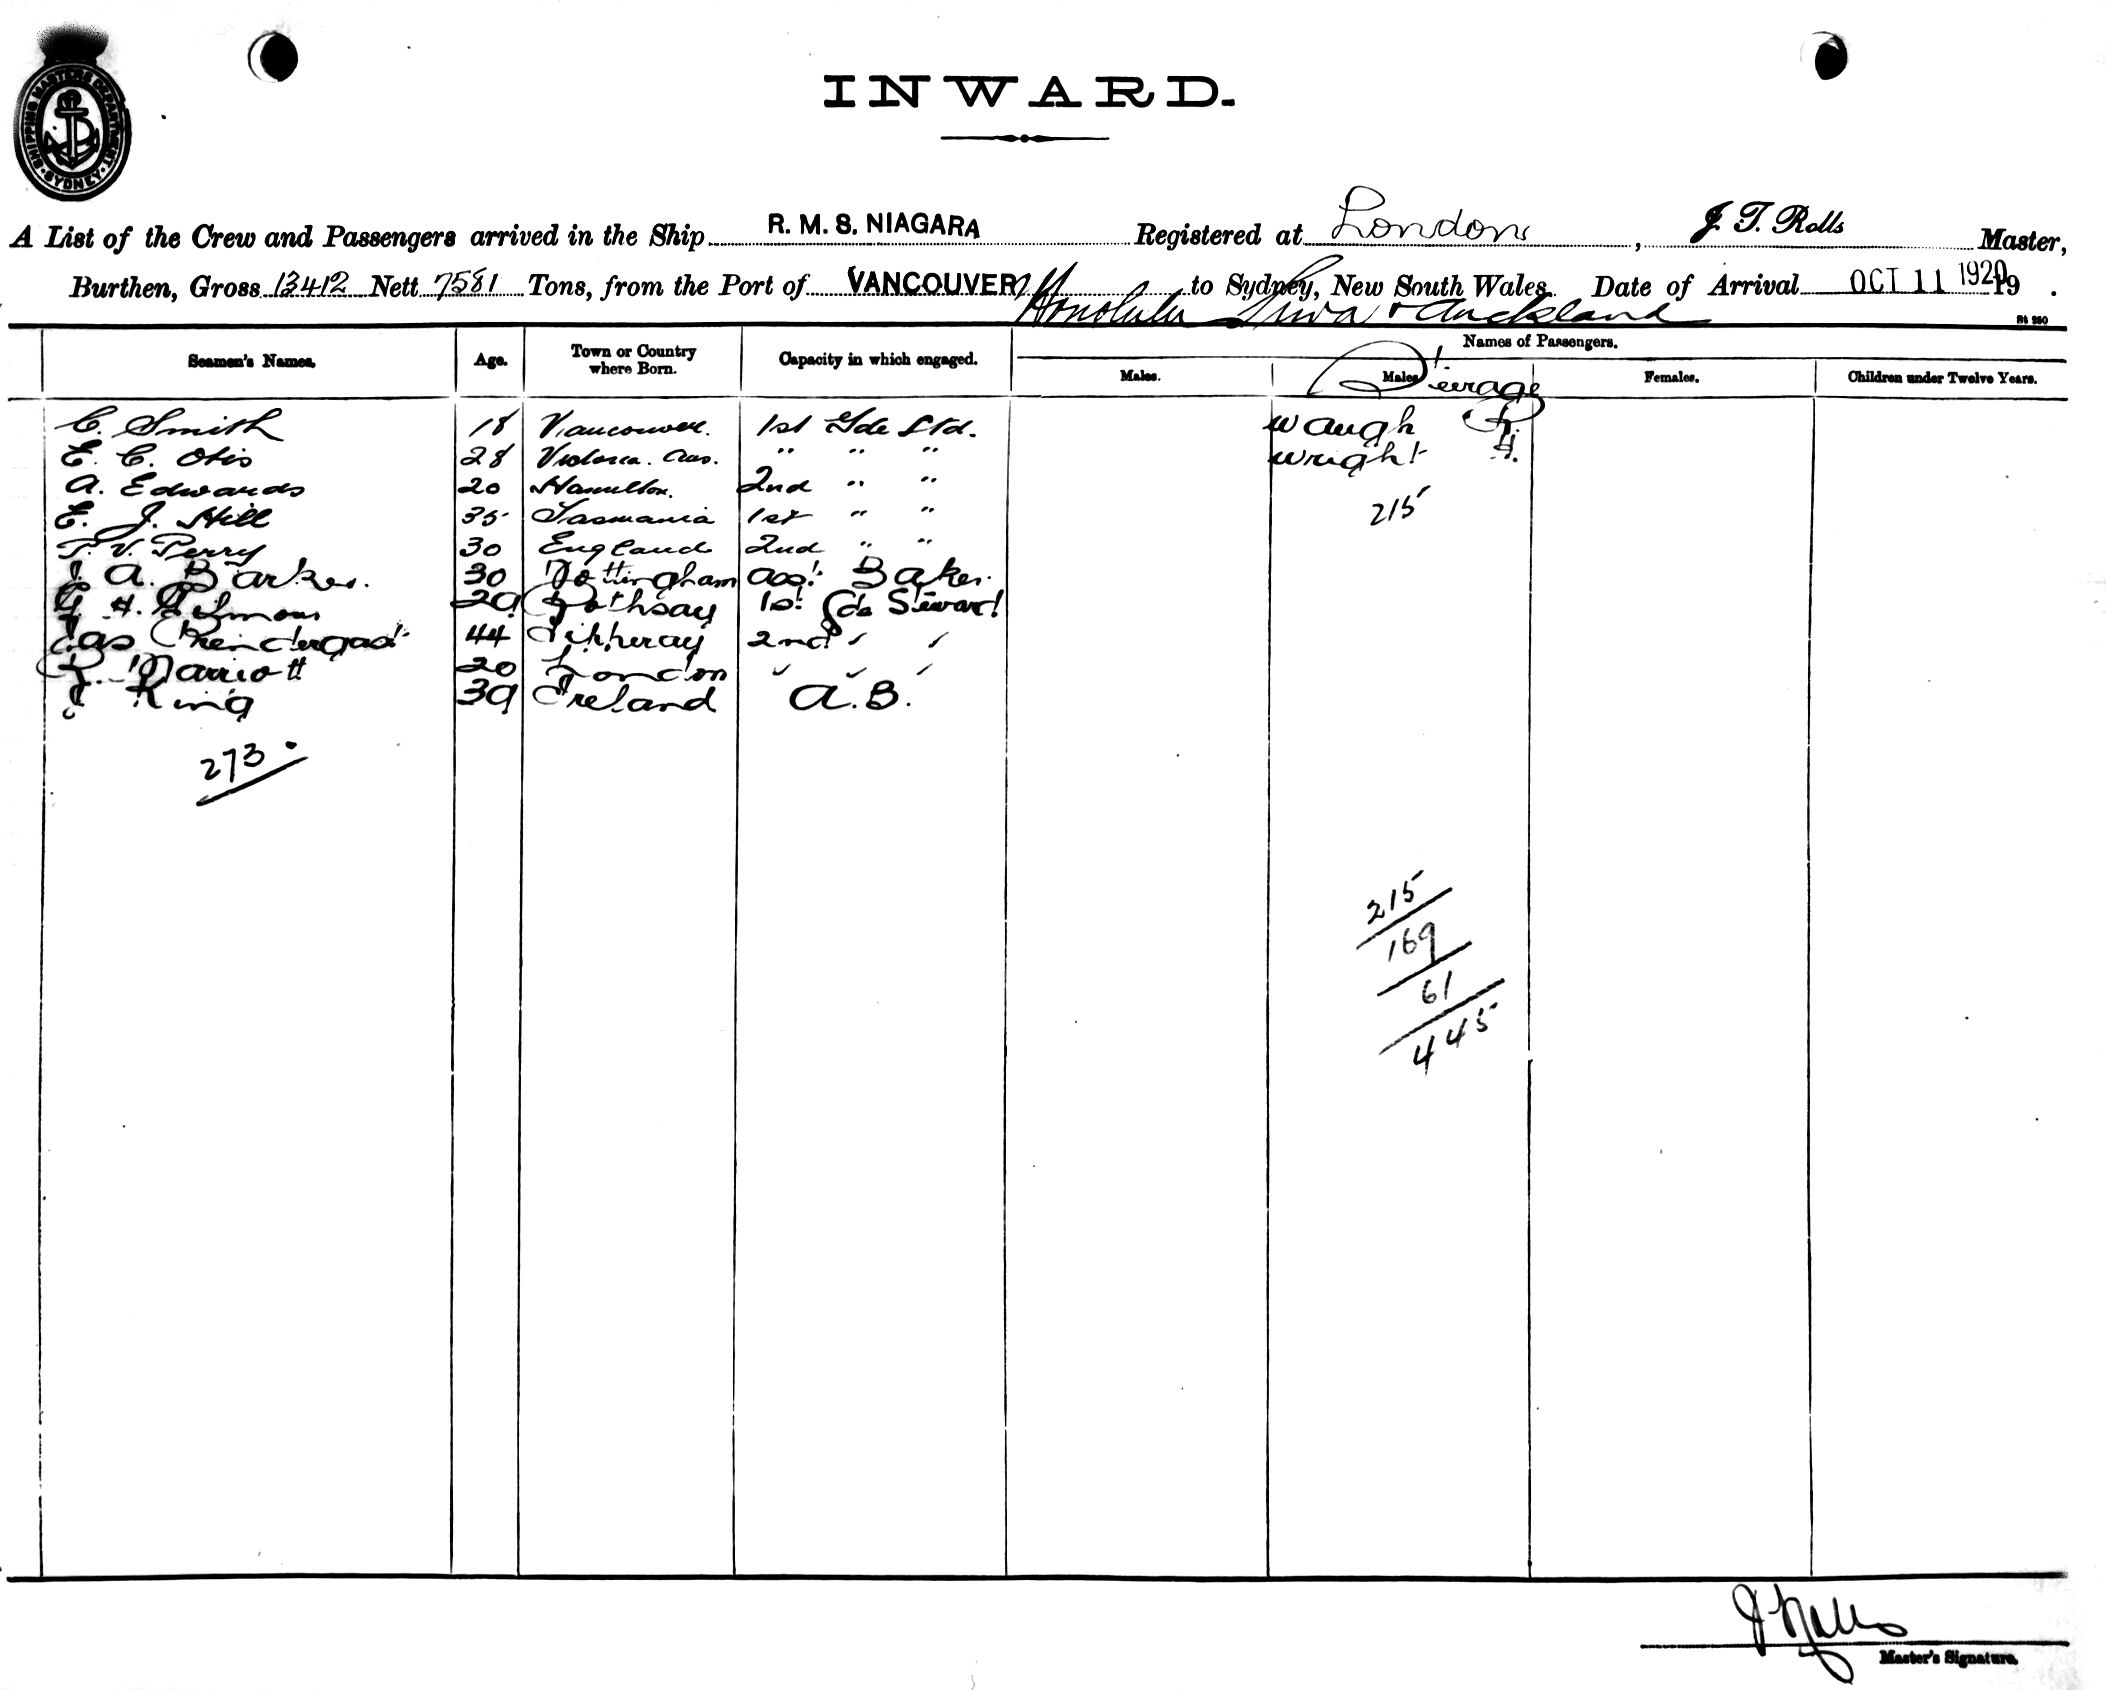 SHIPPING MASTERS DEPARTMENT
SYDNEY
INWARD.
A List of the Crew and Passengers arrived in the Ship R. M. S. NIAGARA Registered at London, J. T. Rolls Master,
Burthen, Gross 13412 Nett 7581 Tons, from the Port of VANCOUVER to Sydney, New South Wales. Date of Arrival OCT 11 1920 19 .
Honolulu Suva & Auckland
St 280
Seamen's Names. Age. Town or Country where Born. Capacity in which engaged. Names of Passengers.
Males. Males. Steerage Females. Children under Twelve Years.
C. Smith 18 Vancouver. 1st Gde Std. Waugh R.
E. C. Otis 28 Victoria. Aus. " " " Wright H.
A. Edwards 20 Hamilton. 2nd " "
E. J. Hill 35 Tasmania 1st " " 215
T. V. Perry 30 England 2nd " "
J. A. Barker. 30 Nottingham Asst. Baker.
G. H. 29 Rothsay 1st Gde Steward
Jas Prendergast 44 Tipperay 2nd " "
R. Marriott 20 London " " "
J King 39 Ireland A.B.
273.
215
169
61
445
J Rolls
Master's Signature.